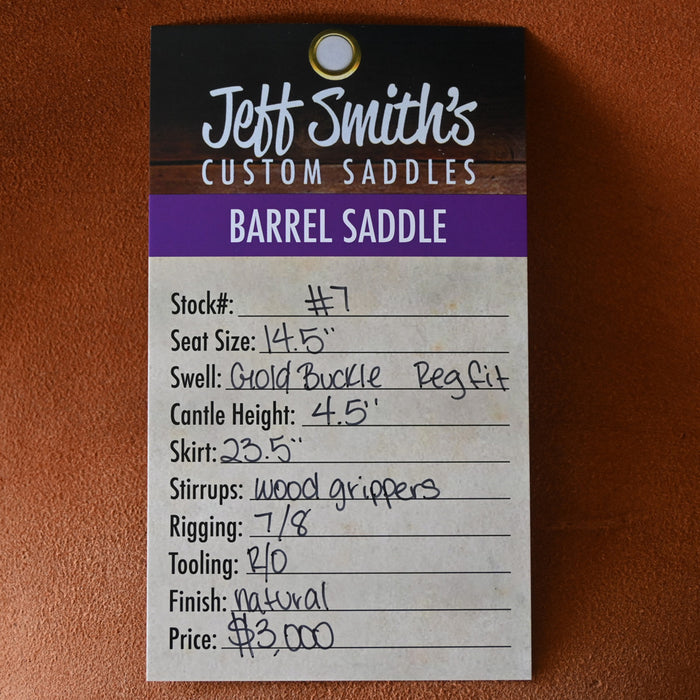 Jeff Smith's
CUSTOM SADDLES
BARREL SADDLE
Stock#: #7
Seat Size: 14.5"
Swell: Gold Buckle Reg fit
Cantle Height: 4.5"
Skirt: 23.5"
Stirrups: wood grippers
Rigging: 7/8
Tooling: R/O
Finish: natural
Price: $3,000